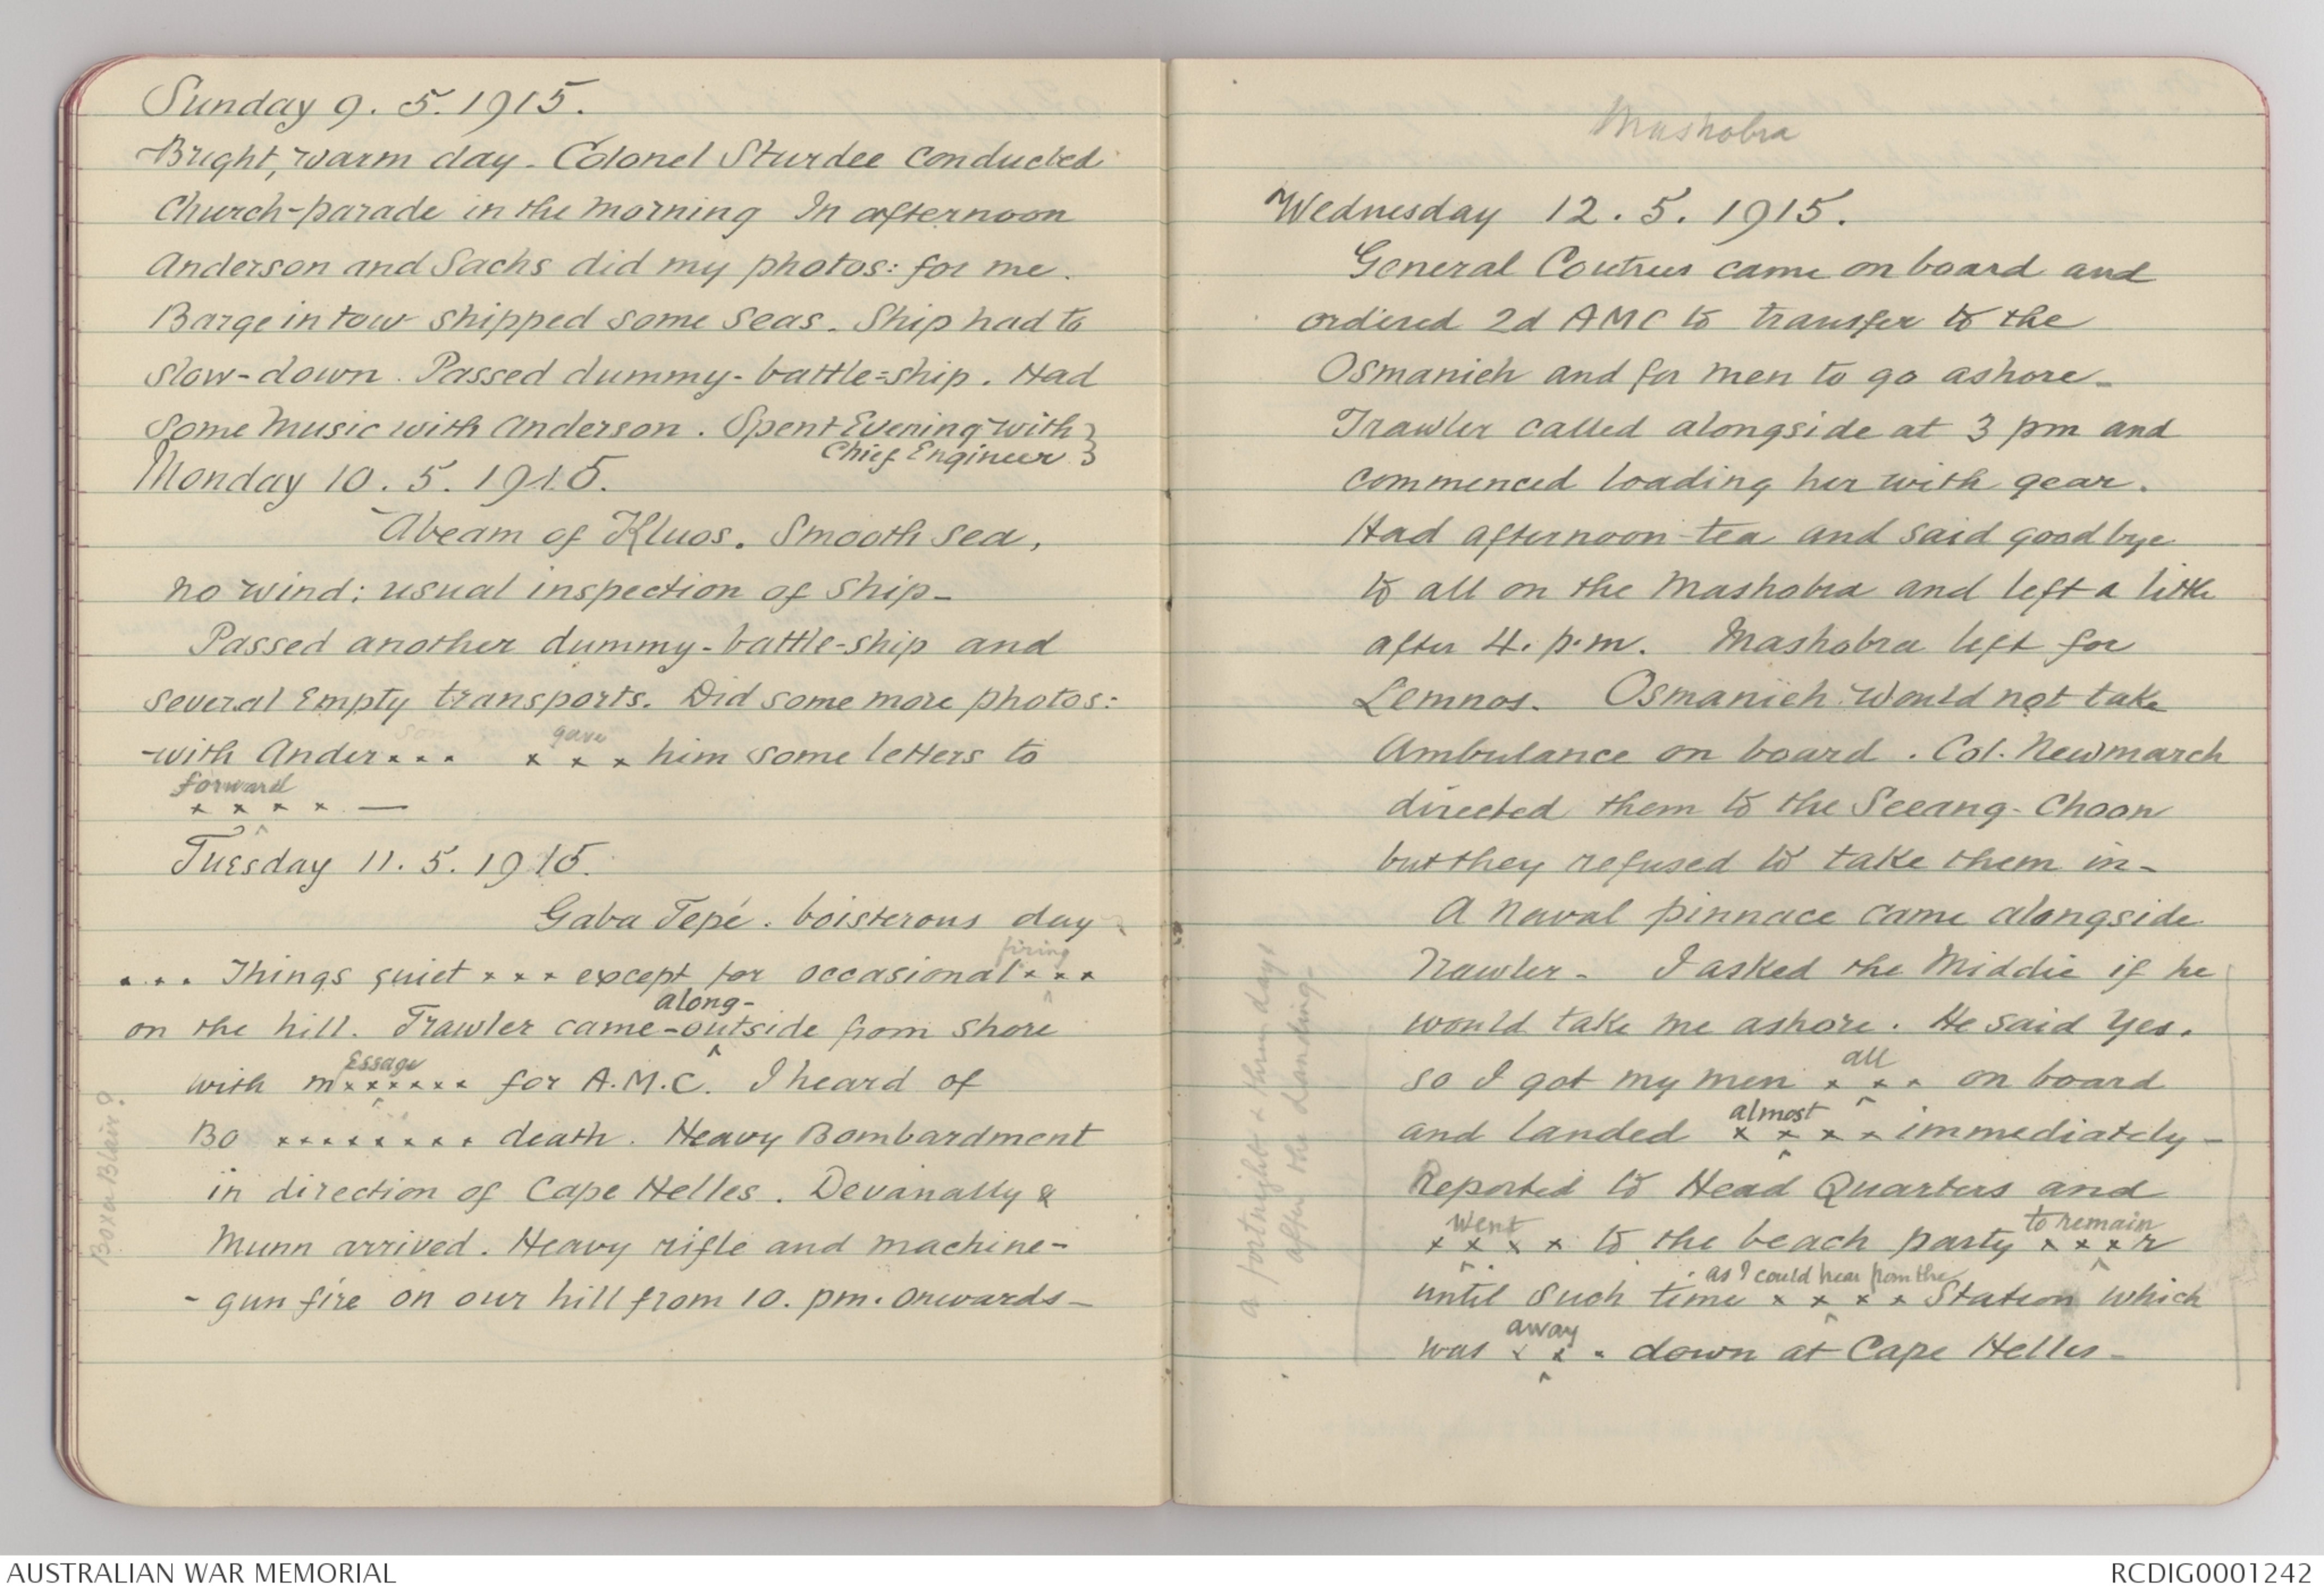 Sunday 9. 5. 1915.
Bright, warm day. Colonel Sturdee conducted
Church-parade in the morning In afternoon
Anderson and Sachs did my photos: for me.
Barge in tow shipped some seas. Ship had to
slow-down. Passed dummy-battle-ship. Had
some music with Anderson. Spent Evening with }
Chief Engineer }
Monday 10. 5. 1915.
Abeam of Kluos. Smooth sea,
no wind: usual inspection of ship-
Passed another dummy-battle-ship and
several Empty transports. Did some more photos:
son gave
with Ander... x x x x him some letters to
forward
x x x x —
Tuesday 11. 5. 1915.
Gaba Tepé. boisterous day
firing
... Things quiet x x x except for occasional x x x
along-
on the hill. Trawler came-outside from shore
Essage
with mxxxxxx for A.M.C. I heard of
Bo xxxxxxxx death. Heavy Bombardment
in direction of Cape Helles. Devanally &
Munn arrived. Heavy rifle and machine-
- gun fire on our hill from 10. pm. onwards-
Boxer Blair?
Mashobra
Wednesday 12. 5. 1915.
General Coutres came on board and
ordered 2d AMC to transfer to the
Osmanieh and for men to go ashore-
Trawler called alongside at 3 pm and
commenced loading her with gear.
Had afternoon-tea and said goodbye
to all on the Mashobra and left a little
after 4. p.m. Mashobra left for
Lemnos. Osmanieh would not take
Ambulance on board. Col. Newmarch
directed them to the Seeang-Choon
but they refused to take them in-
A Naval pinnace came alongside
Trawler- I asked the Middie if he
would take me ashore. He said Yes.
all
so I got my men x x x on board
almost
and landed x x x x immediately-
Reported to Head Quarters and
went to remain
x x x x to the beach party x x x r
as I could hear from the
until such time x x x x Station which
away
was x x . down at Cape Helles-
a fortnight & three days
after the Landing-
AUSTRALIAN WAR MEMORIAL
RCDIG0001242